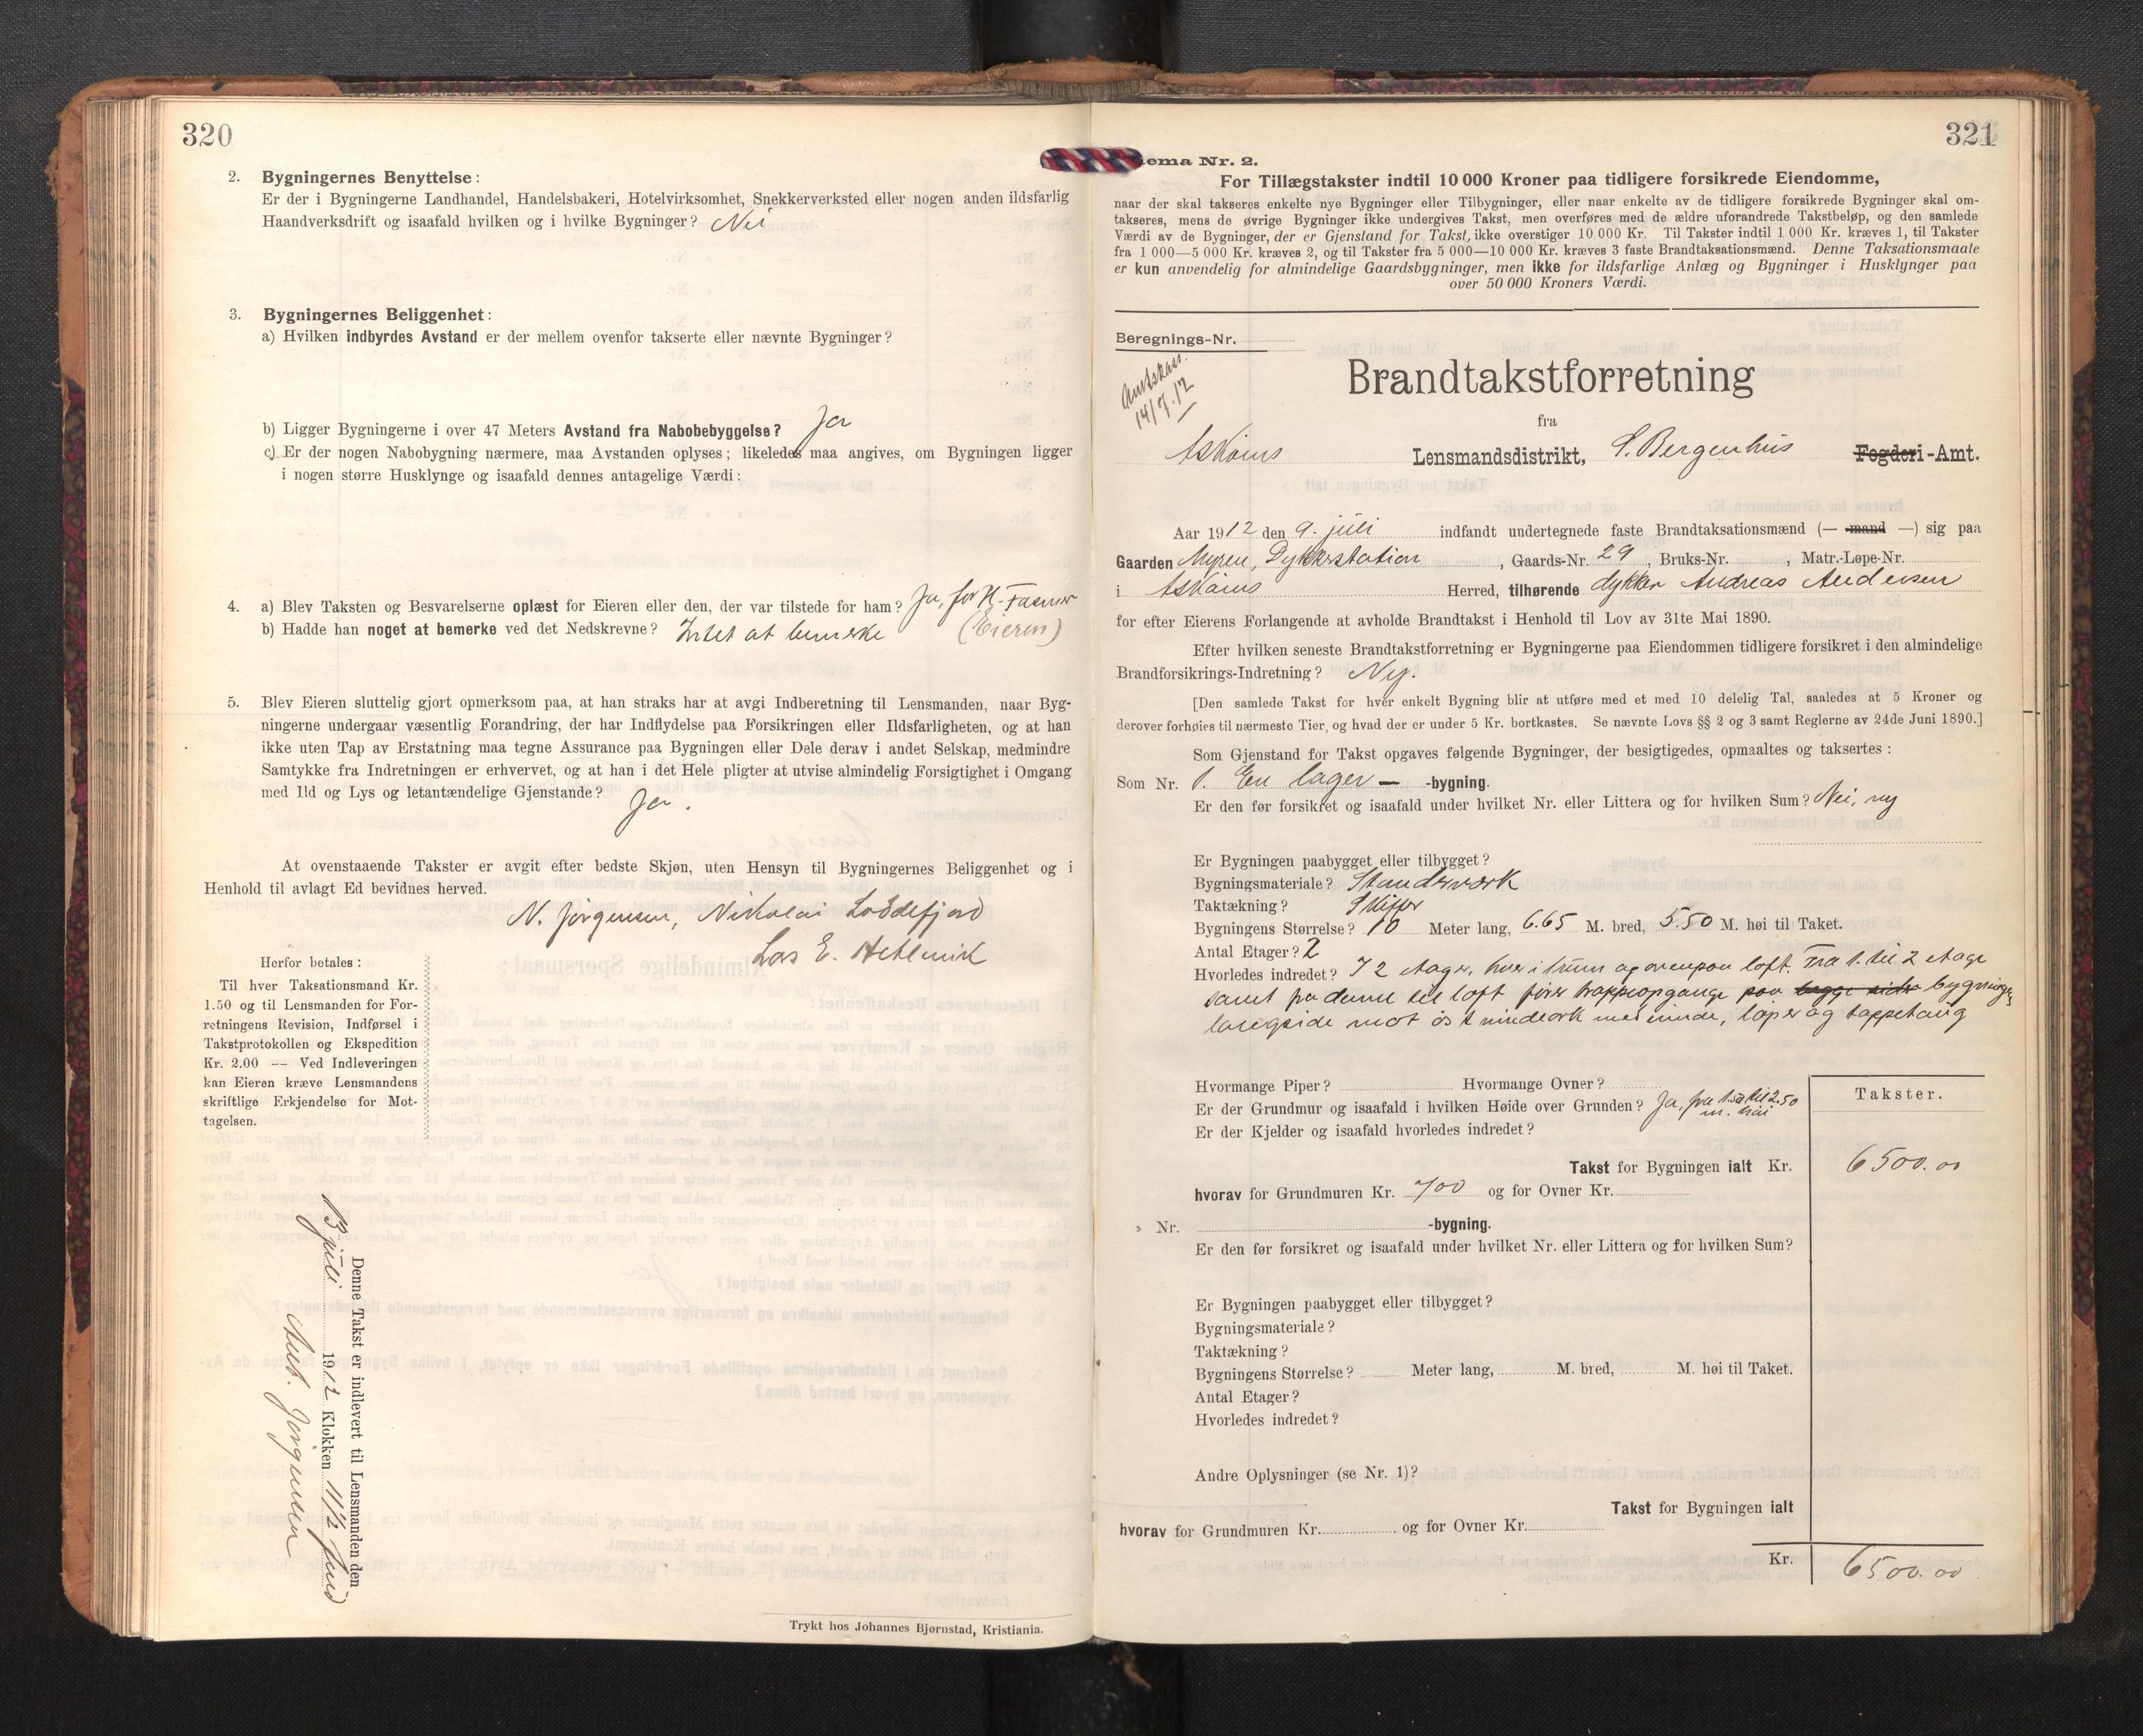 320
2. Bygningernes Benyttelse:
Er der i Bygningerne Landhandel, Handelsbakeri, Hotelvirksomhet, Snekkerverksted eller nogen anden ildsfarlig
Haandverksdrift og isaafald hvilken og i hvilke Bygninger? Nei
3. Bygningernes Beliggenhet:
a) Hvilken indbyrdes Avstand er der mellem ovenfor takserte eller nævnte Bygninger?
b) Ligger Bygningerne i over 47 Meters Avstand fra Nabobebyggelse? Ja
c) Er der nogen Nabobygning nærmere, maa Avstanden oplyses; likeledes maa angives, om Bygningen ligger
i nogen større Husklynge og isaafald dennes antagelige Værdi:
4. a) Blev Taksten og Besvarelserne oplæst for Eieren eller den, der var tilstede for ham? Ja, for H. Fasmer
b) Hadde han noget at bemerke ved det Nedskrevne? Intet at bemerke (Eieren)
5. Blev Eieren sluttelig gjort opmerksom paa, at han straks har at avgi Indberetning til Lensmanden, naar Byg-
ningerne undergaar væsentlig Forandring, der har Indflydelse paa Forsikringen eller Ildsfarligheten, og at han
ikke uten Tap av Erstatning maa tegne Assurance paa Bygningen eller Dele derav i andet Selskap, medmindre
Samtykke fra Indretningen er erhvervet, og at han i det Hele pligter at utvise almindelig Forsigtighet i Omgang
med Ild og Lys og letantændelige Gjenstande? Ja.
At ovenstaaende Takster er avgit efter bedste Skjøn, uten Hensyn til Bygningernes Beliggenhet og i
Henhold til avlagt Ed bevidnes herved.
N. Jørgensen, Nikolai Loddefjord
Lars E. Hetlevik
Herfor betales:
Til hver Taksationsmand Kr.
1.50 og til Lensmanden for For-
retningens Revision, Indførsel i
Takstprotokollen og Ekspedition
Kr. 2.00 — Ved Indleveringen
kan Eieren kræve Lensmandens
skriftlige Erkjendelse for Mot-
tagelsen.
Denne Takst er indlevert til Lensmanden den
13 juli 1912 Klokken 11 1/2
Jørgensen
Trykt hos Johannes Bjørnstad, Kristiania.
321
ema Nr. 2.
For Tillægstakster indtil 10 000 Kroner paa tidligere forsikrede Eiendomme,
naar der skal takseres enkelte nye Bygninger eller Tilbygninger, eller naar enkelte av de tidligere forsikrede Bygninger skal om-
takseres, mens de øvrige Bygninger ikke undergives Takst, men overføres med de ældre uforandrede Takstbeløp, og den samlede
Værdi av de Bygninger, der er Gjenstand for Takst, ikke overstiger 10 000 Kr. Til Takster indtil 1 000 Kr. kræves 1, til Takster
fra 1 000—5 000 Kr. kræves 2, og til Takster fra 5 000—10 000 Kr. kræves 3 faste Brandtaksationsmænd. Denne Taksationsmaate
er kun anvendelig for almindelige Gaardsbygninger, men ikke for ildsfarlige Anlæg og Bygninger i Husklynger paa
over 50 000 Kroners Værdi.
Beregnings-Nr.
14/7.12
Brandtakstforretning
fra
Askøens Lensmandsdistrikt, S. Bergenhus Fogderi-Amt.
Aar 1912 den 9. juli indfandt undertegnede faste Brandtaksationsmænd (— mand —) sig paa
Gaarden Myren, Dykkerstation, Gaards-Nr. 29, Bruks-Nr. , Matr.-Løpe-Nr.
i Askøens Herred, tilhørende dykker Andreas Andersen
for efter Eierens Forlangende at avholde Brandtakst i Henhold til Lov av 31te Mai 1890.
Efter hvilken seneste Brandtakstforretning er Bygningerne paa Eiendommen tidligere forsikret i den almindelige
Brandforsikrings-Indretning? Ny.
[Den samlede Takst for hver enkelt Bygning blir at utføre med et med 10 delelig Tal, saaledes at 5 Kroner og
derover forhøies til nærmeste Tier, og hvad der er under 5 Kr. bortkastes. Se nævnte Lovs §§ 2 og 3 samt Reglerne av 24de Juni 1890.]
Som Gjenstand for Takst opgaves følgende Bygninger, der besigtigedes, opmaaltes og taksertes:
Som Nr. 1. En lager- -bygning.
Er den før forsikret og isaafald under hvilket Nr. eller Littera og for hvilken Sum? Nei, ny
Er Bygningen paabygget eller tilbygget?
Bygningsmateriale? Standerværk
Taktækning? Skifer
Bygningens Størrelse? 10 Meter lang, 6.65 M. bred, 5.50 M. høi til Taket.
Antal Etager? 2
Hvorledes indredet? I 2 etager, hver i 1 rum og ovenpaa loft. Fra 1. til 2 etage
samt fra denne til loft fører trappeopgange paa begge sider bygningens
langside mot øst vindeark med vinde, løper og tappetaug
Hvormange Piper? Hvormange Ovner?
Er der Grundmur og isaafald i hvilken Høide over Grunden? Ja, fra 1.50 til 2.50
m. høi
Er der Kjelder og isaafald hvorledes indredet?
Takster.
Takst for Bygningen ialt Kr. 6500.00
hvorav for Grundmuren Kr. 700 og for Ovner Kr.
» Nr. -bygning.
Er den før forsikret og isaafald under hvilket Nr. eller Littera og for hvilken Sum?
Er Bygningen paabygget eller tilbygget?
Bygningsmateriale?
Taktækning?
Bygningens Størrelse? Meter lang, M. bred, M. høi til Taket.
Antal Etager?
Hvorledes indredet?
Andre Oplysninger (se Nr. 1)?
Takst for Bygningen ialt
hvorav for Grundmuren Kr. og for Ovner Kr.
Kr. 6500.00